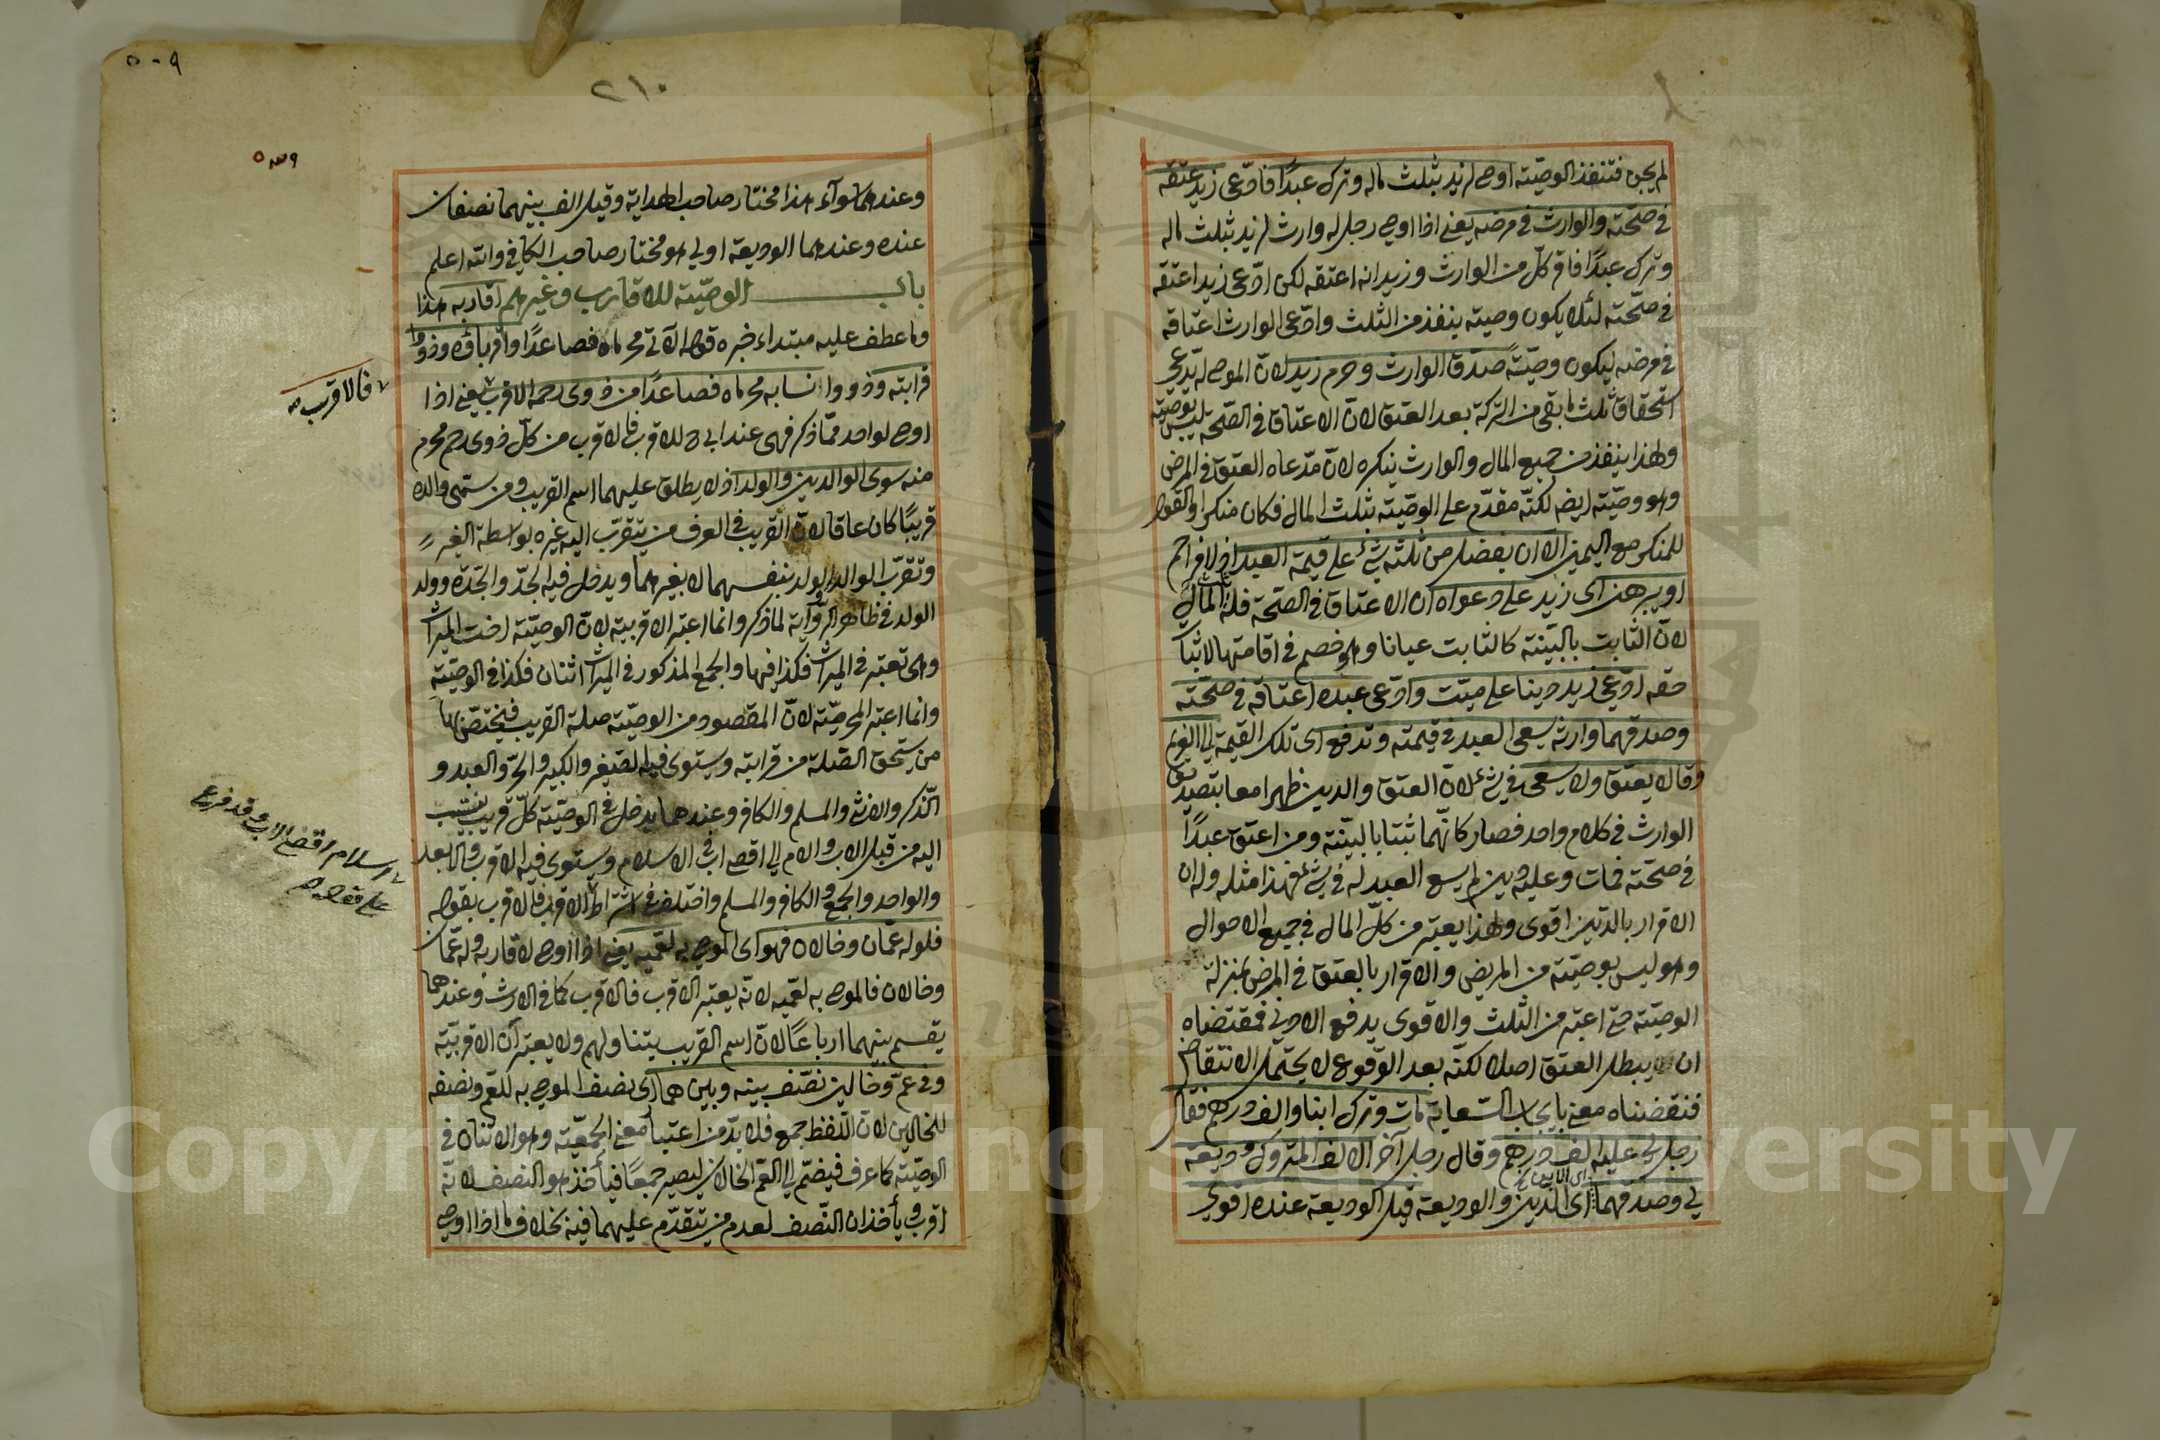 لم يجز فتنفذ الوصية اوصى لزيد بثلث ماله وترك عبدًا فادّعى زيد عتقه
في صحّته والوارث في مرضه يعني اذا اوصى رجل له وارث لزيد بثلث ماله
وترك عبدًا فاقر كلّ من الوارث وزيد انه اعتقه لكن ادّعى زيد اعتقه
في صحّته لئلا يكون وصيته ينفذ من الثلث وادّعى الوارث اعتاقه
في مرضه ليكون وصيّة صدّق الوارث وحرم زيد لانّ الموصى له يدّعي
استحقاق ثلث ما بقي من التركة بعد العتق لانّ الاعتاق في الصحّة ليس بوصيّة
ولهذا ينفذ من جميع المال والوارث ينكره لانّ مدّعاه العتق في المرض
وهو وصيّة ايضا لكنّه مقدّم على الوصيّة بثلث المال فكان منكرا والقول
للمنكر مع اليمين الا ان يفضل من ثلثه شئ على قيمة العبد اذ لا مزاحم
او يبرهن اى زيد على دعواه ان الاعتاق في الصّحة فله المال
لانّ الثّابت بالبيّنة كالثابت عيانا وهو خصم في اقامتها لاثبات
حقه ادّعى زيد دينا على ميّت وادّعى عبده اعتاقه في صحّته
وصدقهما وارثه يسعى العبد في قيمته وتدفع اى تلك القيمة الى الغريم
وقالا يعتق ولا يسعى في شئ لانّ العتق والدين ظهرا معا بتصديق
الوارث في كلام واحد فصار كانّهما ثبتا بالبيّنة ومن اعتق عبدًا
في صحّته فمات وعليه دين لم يسع العبد له في شئ فهذا مثله وله ان
الاقرار بالدّين اقوى ولهذا يعتبر من كلّ المال في جميع الاحوال
وهو ليس بوصيّة من المريض والاقرار بالعتق في المرض بمنزلة
الوصيّة حتى اعتبر من الثلث والاقوى يدفع الادنى فمقتضاه
ان يبطل العتق اصلا لكنّه بعد الوقوع لا يحتمل الانتقاض
فنقضناه معنى بايجاب السّعاية مات وترك ابنا والف درهم فقال
رجل لي عليه الف درهم وقال رجل آخر الالف المتروك وديعة
لي وصدقهما اى الدّين والوديعة قيل الوديعة عنده اقوى
٥٠٩
٢١٠
٥٣٩
وعندهما سواء هذا مختار صاحب الهداية وقيل الف بينهما نصفان
عنده وعندهما الوديعة اولى هو مختار صاحب الكافي والله اعلم
باب الوصيّة للاقارب وغيرهم اقاربه هذا
وما عطف عليه مبتداء خبره قوله الآتي محرماه فصاعدًا واقرباؤه وذووا
قرابته وذووا انسابه محرماه فصاعدًا من ذوى رحمه الاقرب يعني اذا
فالاقرب
اوصى لواحد ممّا ذكر فهى عند ابى ح للاقرب فالاقرب من كلّ ذوى رحم محرم
منه سوى الوالدين والولد اذ لا يطلق عليهما اسم القريب ومن سمّى والده
قريبًا كان عاقا لانّ القريب في العرف من يتقرّب اليه غيره بواسطة الغير
وتقرّب الوالد والولد بنفسهما لا بغيرهما ويدخل فيه الجدّ والجدّة وولد
الولد في ظاهر الرواية لما ذكر وانما اعتبر الاقربية لانّ الوصيّة اخت الميراث
وهى تعتبر في الميراث فكذا فيها والجمع المذكور في الميراث اثنان فكذا في الوصيّة
وانما اعتبر المحرميّة لانّ المقصود من الوصيّة صلة القريب فيختصّ بها
من يستحق الصّلة من قرابته ويستوى فيه الصّغير والكبير والحرّ والعبد و
الذّكر والانثى والمسلم والكافر وعندهما يدخل في الوصيّة كلّ قريب ينسب
اليه من قبل الاب والام الى اقصى اب في الاسلام ويستوى فيه الاقرب والابعد
والواحد والجمع والكافر والمسلم واختلف في اشتراط الاقرب فالاقرب بقوله
فلو له عمّان وخالان فهو اى الموصى به لعمّيه يعني اذا اوصى لاقاربه وله عمّان
وخالان فالموصى به لعمّيه لانّه يعتبر الاقرب فالاقرب كما في الارث وعندهما
يقسم بينهما ارباعًا لانّ اسم القريب يتناولهم ولا يعتبران الاقربيّة
وفي عمّ وخالين نصّف بينه وبينهما اى نصف الموصى به للعمّ ونصفه
للخالين لان اللّفظ جمع فلا بدّ من اعتبار معنى الجمعيّة وهو الاثنان في
الوصيّة كما عرف فيضمّ الى العمّ الخالان ليصير جمعًا فيأخذ هو النصف لانّه
اقرب ويأخذان النّصف لعدم من يتقدّم عليهما فيه بخلاف ما اذا اوصى